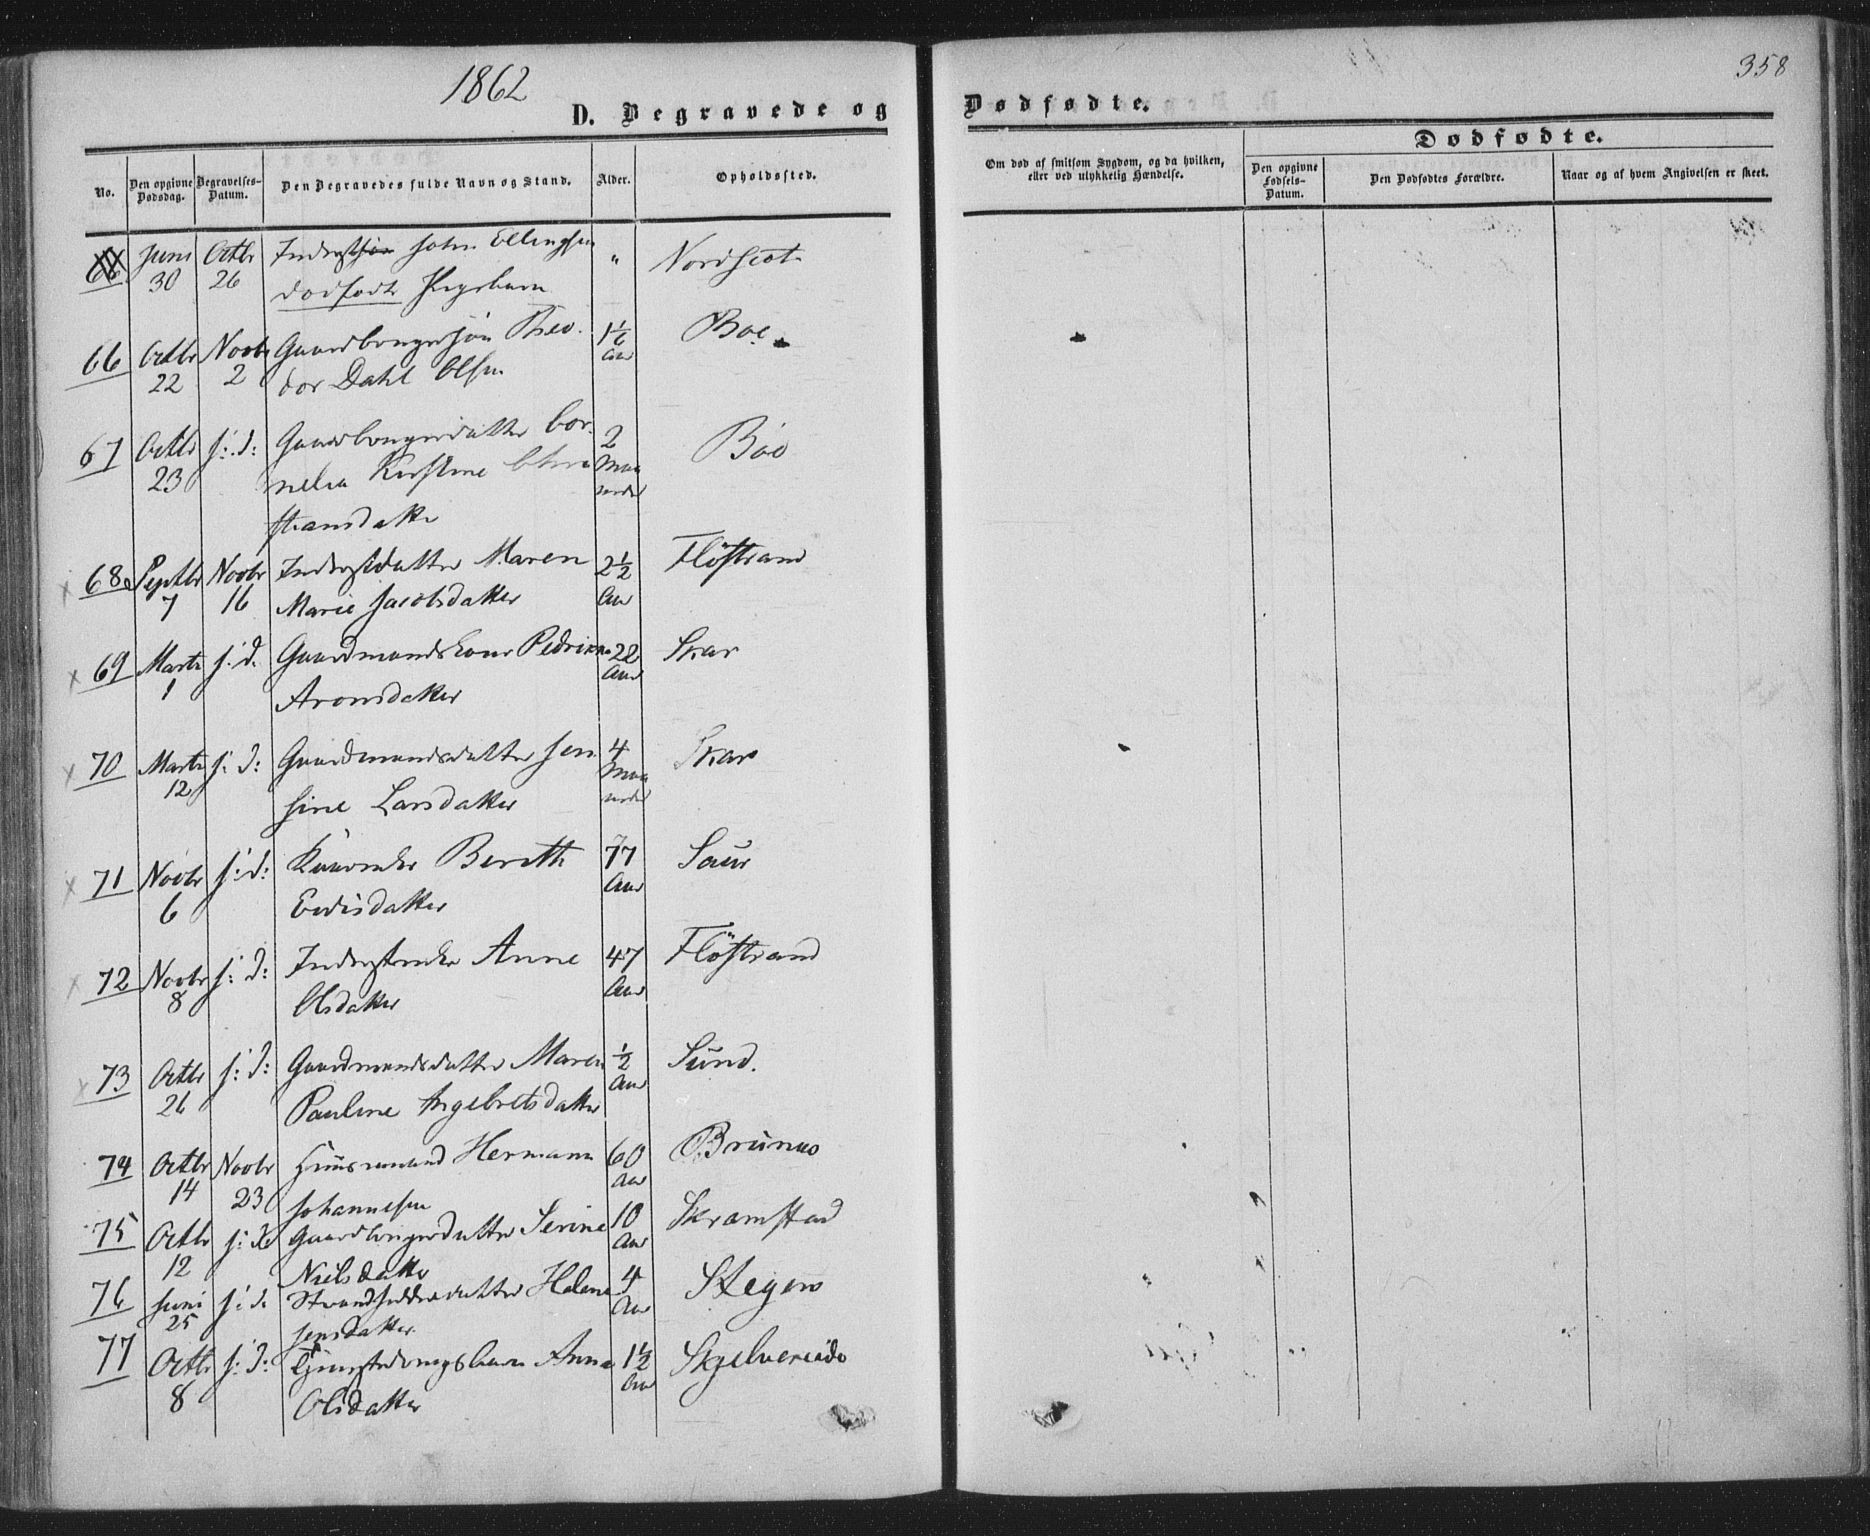 1862
358
D. Begravede og Dødfødte.
No.
Den opgivne Dødsdag.
Begravelses-Datum.
Den Begravedes fulde Navn og Stand.
Alder.
Opholdssted.
Om død af smitsom Sygdom, og da hvilken,
eller ved ulykkelig Hændelse.
Dødfødte.
Den opgivne Fødsels-Datum.
Den Dødfødtes Forældre.
Naar og af hvem Angivelsen er skeet.
Juni Octbr John Ellingsen "
30 26 dødfødte
66 Octbr Novbr Gaardbrugersøn Theo- 1 1/6 Aar Bøe
22 2 dor Dahl Olsen
67 Octbr s: d: Gaardbrugerdatter Cor- 2 Maaneder Böe
23 nelia Kirstine Chri
stiansdatter
68 Septbr Novbr Inderstdatter Maren 2 1/2 Aar Flöstrand
7 16 Marie Jacobsdatter
69 Marts s. d. Gaardmandskone Pedrikka 22 Aar Skar
1 Aronsdatter
70 Marts s: d: Gaardmandsdatter Jen 4 Maaneder Skar
12 sine Larsdatter
71 Novbr s: d: Berith 77 Aar Saur
6
72 Novbr s: d: Anne 47 Aar Flöstrand
8 Olsdatter
73 Octbr s: d: Gaardmandsdatter Maren 1/2 Aar Sund.
26 Pauline Ingebretsdatter
74 Octbr Novbr Huusmand Hermann 60 Aar
14 23 Johannesen
75 Octbr s: d: Gaardbrugerdatter Serine 10 Aar Skramstad
12 Nielsdatter
76 Juni s: d. Strandsidderdatter Helene 4 Aar Stegen
25 Jensdatter
77 Octbr s: d: Anna 1 1/2 Aar
8 Olsdatter